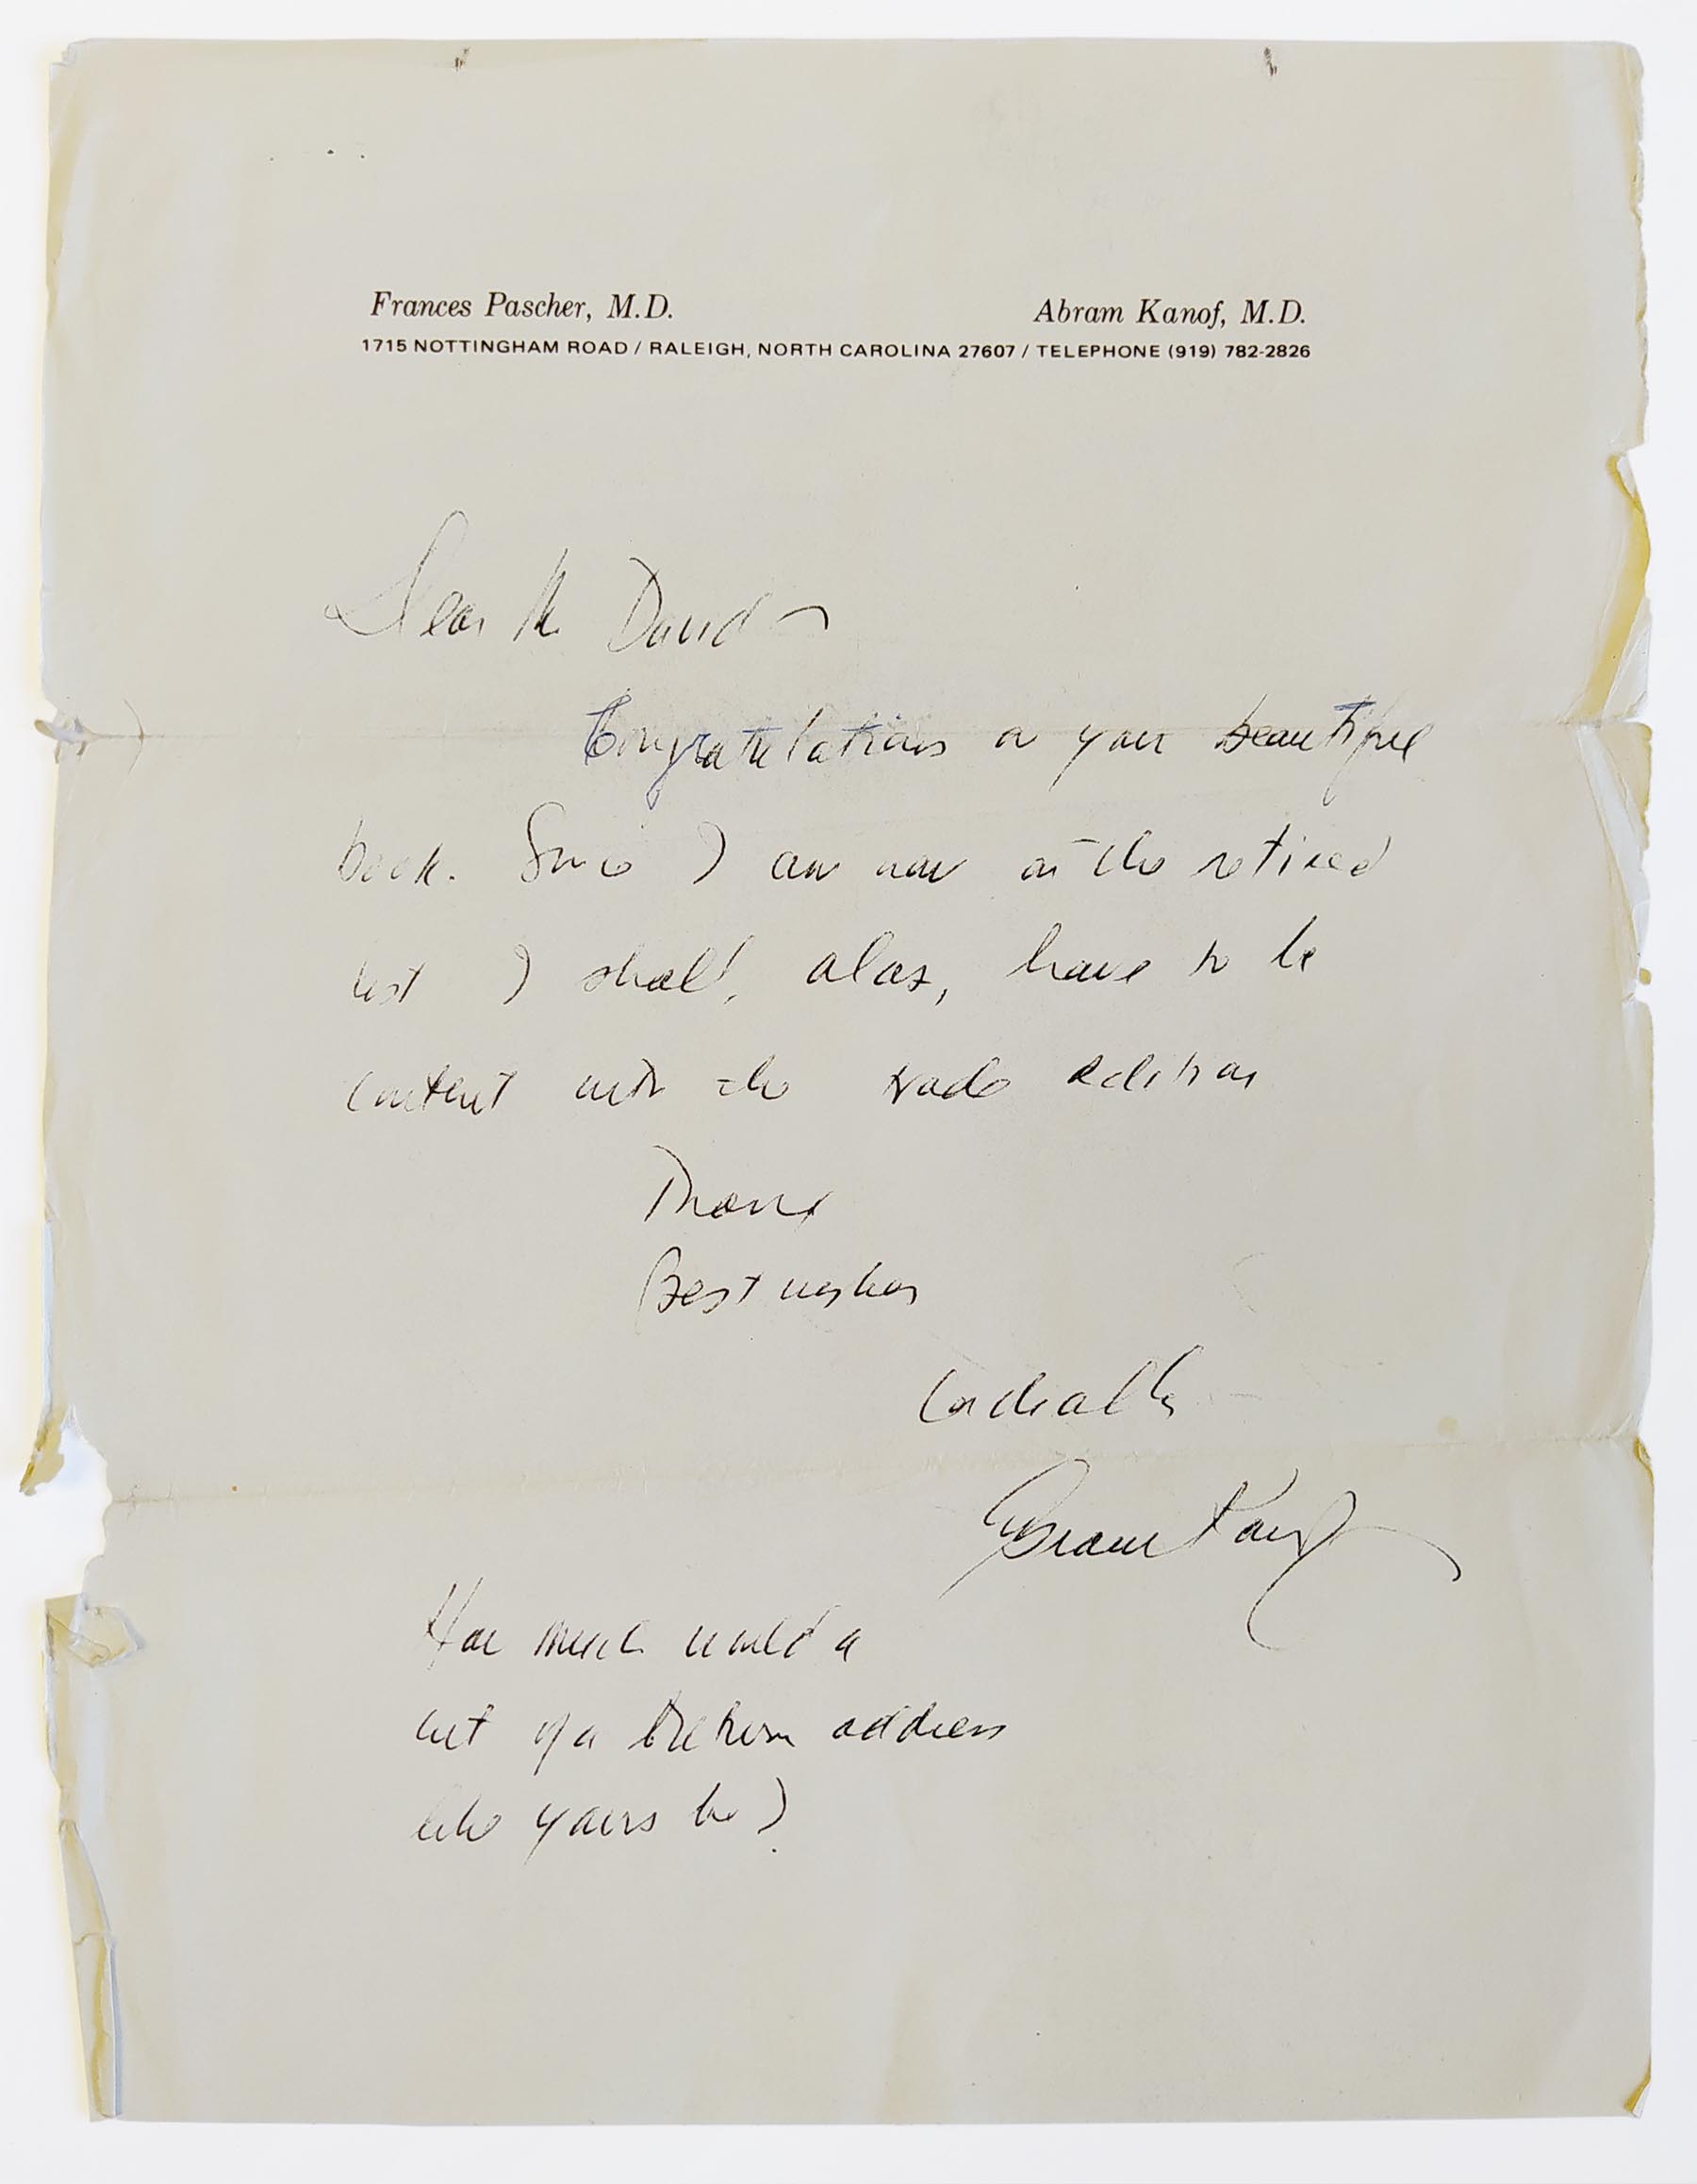 Frances Pascher, M.D. Abram Kanof, M.D.
1715 NOTTINGHAM ROAD / RALEIGH, NORTH CAROLINA 27607 / TELEPHONE (919) 782-2826
Dear Mr David
Congratulations on your beautiful
book. Since I am now on the retired
list I shall, alas, have to be
content with the trade edition
Thanks
Best wishes
Cordially
Abram Kanof
How much would a
cut of a return address
like yours be?